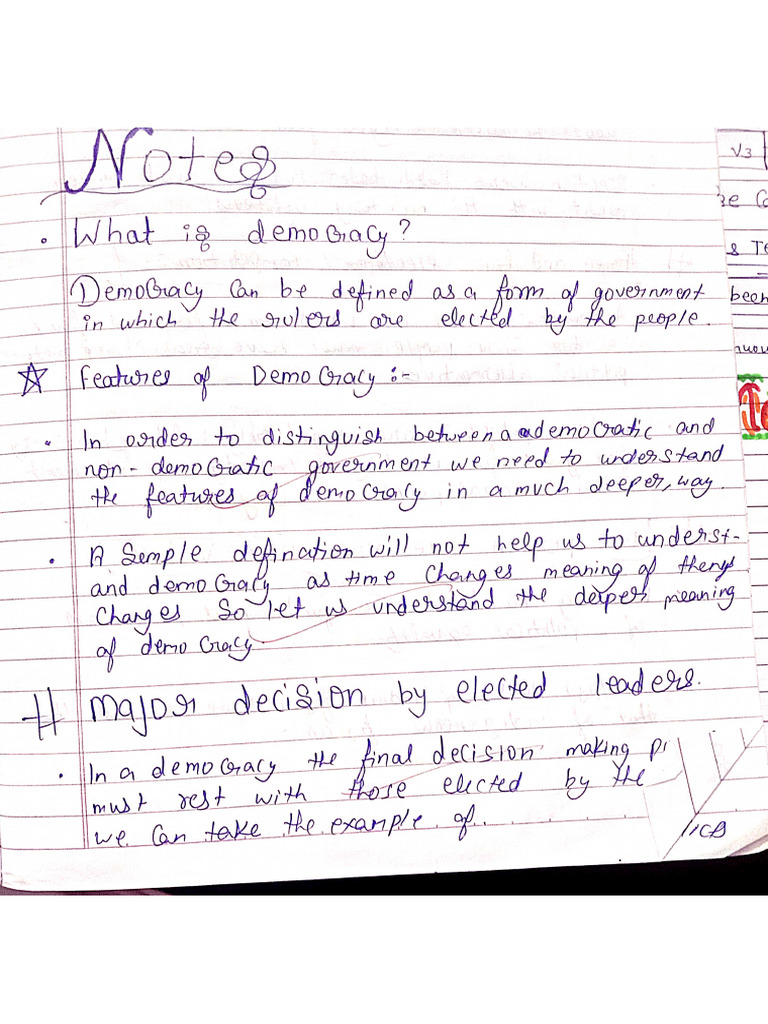 Notes
V3
• What is democracy?
Democracy can be defined as a form of government
in which the rulers are elected by the people.
been
☆ features of Democracy :-
• In order to distinguish between a democratic and
non-democratic government we need to understand
the features of democracy in a much deeper, way.
• A Semple defination will not help us to underst-
and democracy as time changes meaning of
changes so let us understand the deeper meaning
of democracy
# major decision by elected leaders.
• In a democracy the final decision making
must rest with those elected by the
we can take the example of.